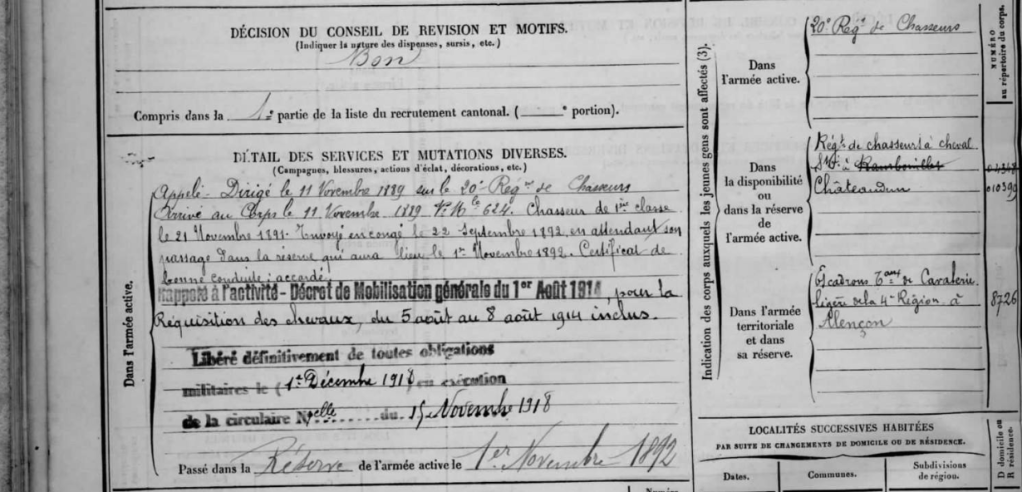 DÉCISION DU CONSEIL DE REVISION ET MOTIFS.
(Indiquer la nature des dispenses, sursis, etc.)
Bon
Compris dans la 1re partie de la liste du recrutement cantonal. ( e portion).
DÉTAIL DES SERVICES ET MUTATIONS DIVERSES.
(Campagnes, blessures, actions d'éclat, décorations, etc.)
Dans l'armée active.
Appelé. Dirigé le 11 Novembre 1889 sur le 20e Régt de Chasseurs
Arrivé au Corps le 11 Novembre 1889 No Mle 624. Chasseur de 1re classe
le 21 Novembre 1891. Envoyé en congé le 22 Septembre 1892, en attendant son
passage dans la réserve qui aura lieu le 1er Novembre 1892. Certificat de
bonne conduite : accordé.
Rappelé à l'activité - Décret de Mobilisation générale du 1er Août 1914, pour la
Réquisition des chevaux, du 5 août au 8 août 1914 inclus.
Libéré définitivement de toutes obligations
militaires le (1er Décembre 1918) en exécution
de la circulaire Nelle du 15 Novembre 1918
Passé dans la Réserve de l'armée active le 1er Novembre 1892
Indication des corps auxquels les jeunes gens sont affectés (3).
NUMÉRO
au répertoire du corps.
Dans
l'armée active.
20e Régt de Chasseurs
Dans
la disponibilité
ou
dans la réserve
de
l'armée active.
Régt de chasseurs à cheval
à Rambouillet
Châteaudun
Dans l'armée
territoriale
et dans
sa réserve.
Escadrons Taux de Cavalerie
légère de la 4e Région, à
Alençon
8726
LOCALITÉS SUCCESSIVES HABITÉES
PAR SUITE DE CHANGEMENTS DE DOMICILE OU DE RÉSIDENCE.
Dates.
Communes.
Subdivisions
de région.
D domicile ou
R résidence.